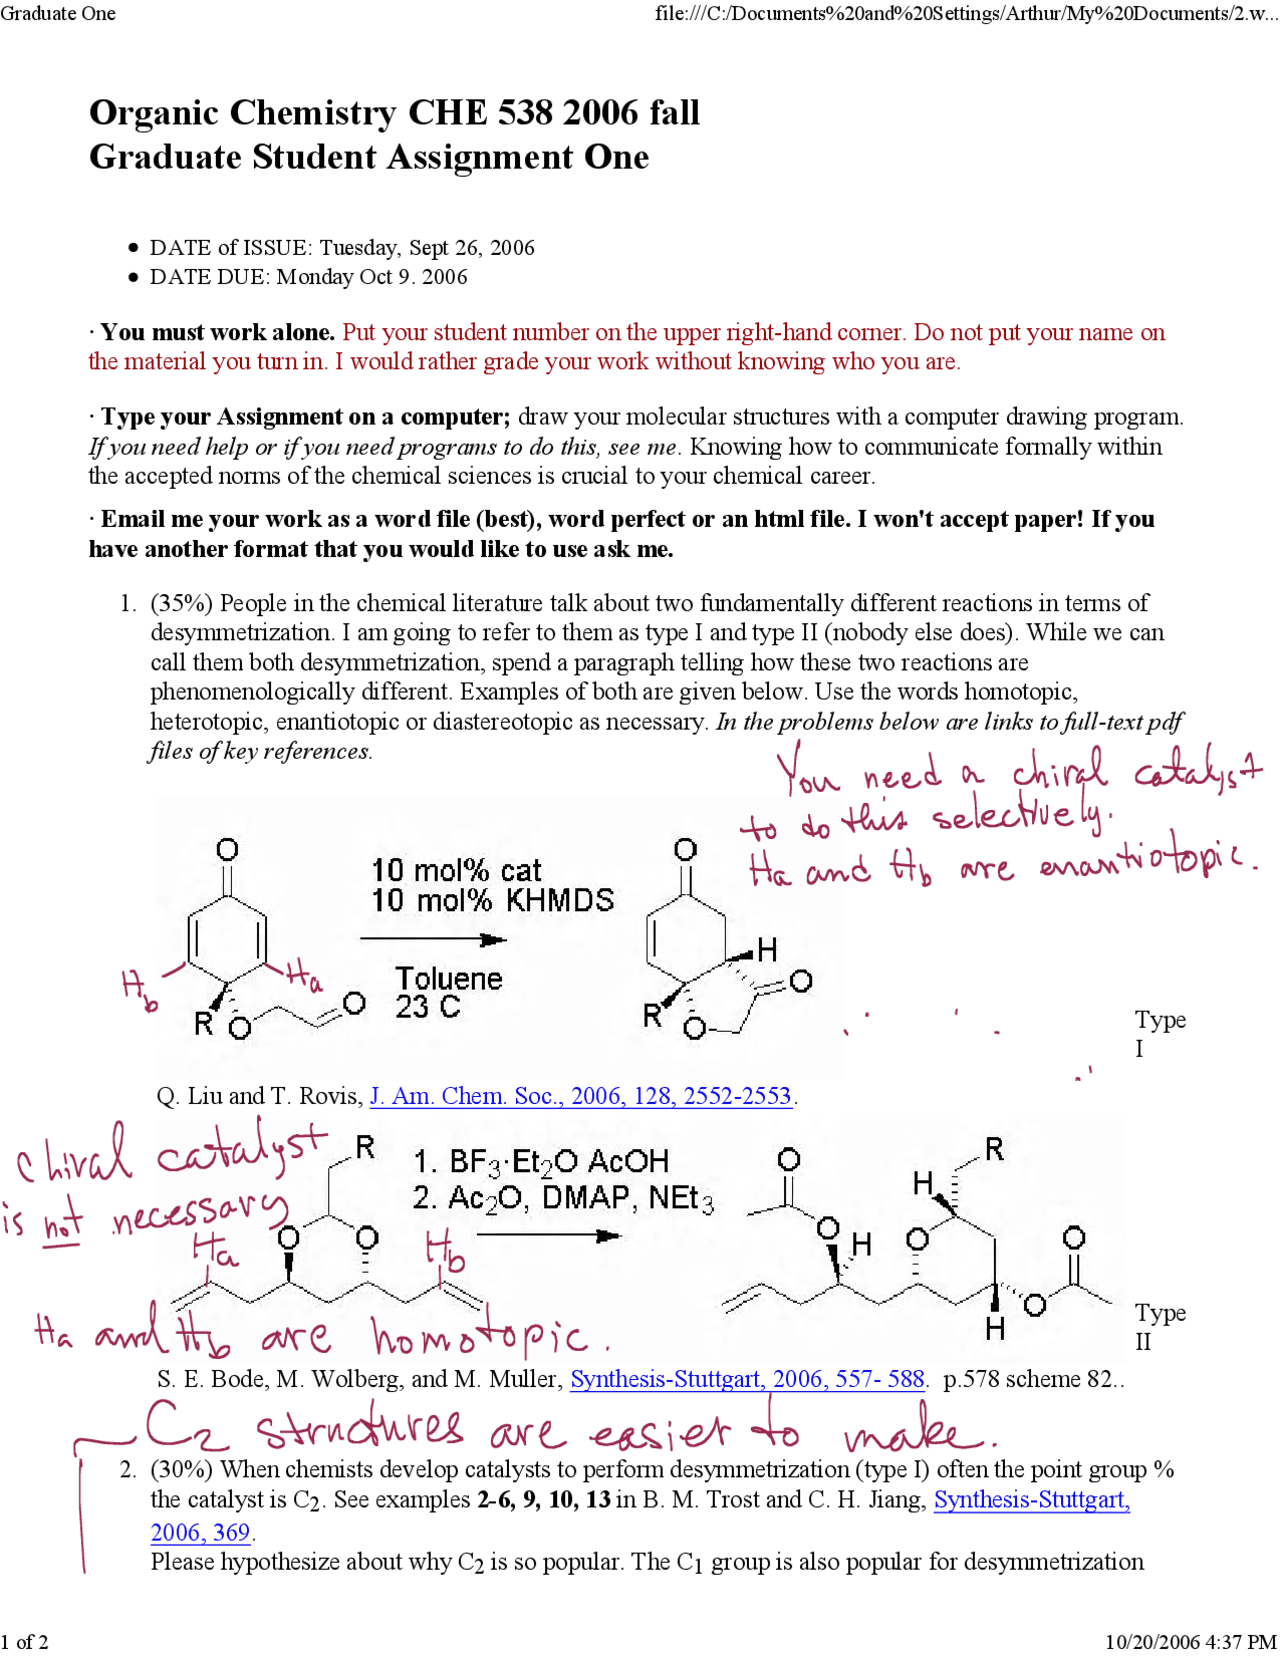 Graduate One
file:///C:/Documents%20and%20Settings/Arthur/My%20Documents/2.w...
Organic Chemistry CHE 538 2006 fall
Graduate Student Assignment One
• DATE of ISSUE: Tuesday, Sept 26, 2006
• DATE DUE: Monday Oct 9. 2006
· You must work alone. Put your student number on the upper right-hand corner. Do not put your name on
the material you turn in. I would rather grade your work without knowing who you are.
· Type your Assignment on a computer; draw your molecular structures with a computer drawing program.
If you need help or if you need programs to do this, see me. Knowing how to communicate formally within
the accepted norms of the chemical sciences is crucial to your chemical career.
· Email me your work as a word file (best), word perfect or an html file. I won't accept paper! If you
have another format that you would like to use ask me.
1. (35%) People in the chemical literature talk about two fundamentally different reactions in terms of
desymmetrization. I am going to refer to them as type I and type II (nobody else does). While we can
call them both desymmetrization, spend a paragraph telling how these two reactions are
phenomenologically different. Examples of both are given below. Use the words homotopic,
heterotopic, enantiotopic or diastereotopic as necessary. In the problems below are links to full-text pdf
files of key references.
You need a chiral catalyst
to do this selectively.
Ha and Hb are enantiotopic.
O
10 mol% cat
10 mol% KHMDS
Toluene
23 C
Hb
Ha
R
O
O
O
H
O
R
O
Type
I
Q. Liu and T. Rovis, J. Am. Chem. Soc., 2006, 128, 2552-2553.
chiral catalyst
is not necessary
R
1. BF3·Et2O AcOH
2. Ac2O, DMAP, NEt3
Ha
O
O
Hb
O
O
H
R
H
O
O
O
H
Type
II
Ha and Hb are homotopic.
S. E. Bode, M. Wolberg, and M. Muller, Synthesis-Stuttgart, 2006, 557- 588. p.578 scheme 82..
C2 structures are easier to make.
2. (30%) When chemists develop catalysts to perform desymmetrization (type I) often the point group %
the catalyst is C2. See examples 2-6, 9, 10, 13 in B. M. Trost and C. H. Jiang, Synthesis-Stuttgart,
2006, 369.
Please hypothesize about why C2 is so popular. The C1 group is also popular for desymmetrization
1 of 2
10/20/2006 4:37 PM